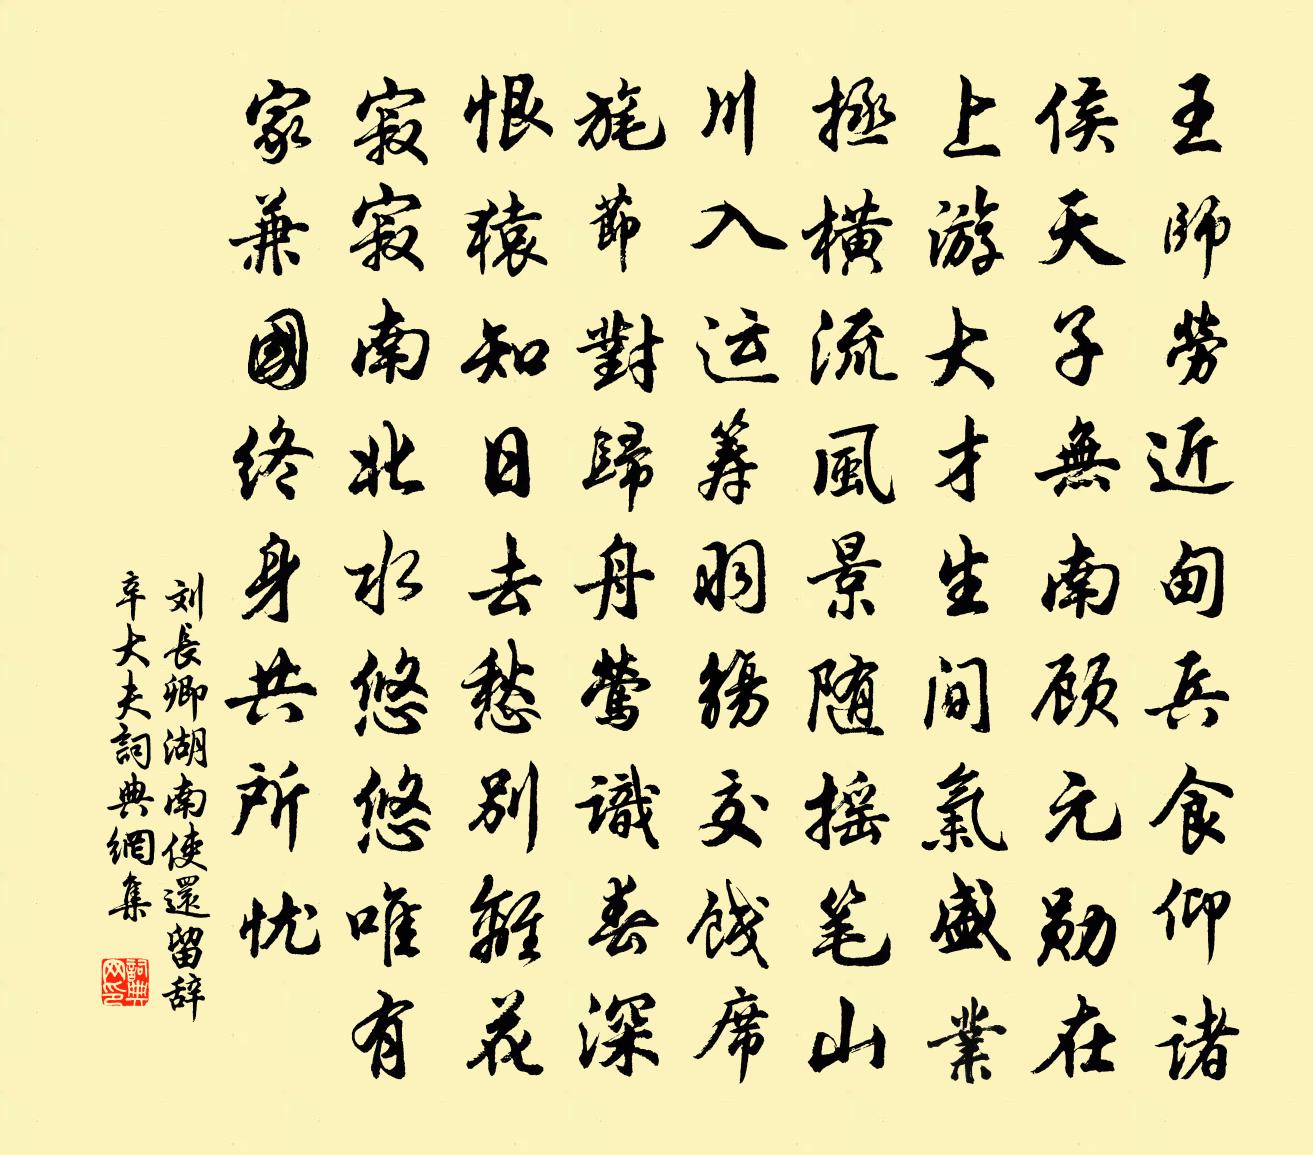 王師勞近甸兵食仰諸
侯天子無南顾元勋在
上游大才生間氣盛業
拯橫流風景随摇笔山
川入运筹羽觴交饯席
旄節對歸舟鶯識春深
恨猿知日去愁别離花
寂寂南北水悠悠唯有
家兼國终身共所忧
刘長卿湖南使還留辞
辛大夫詞典網集
詞典网印